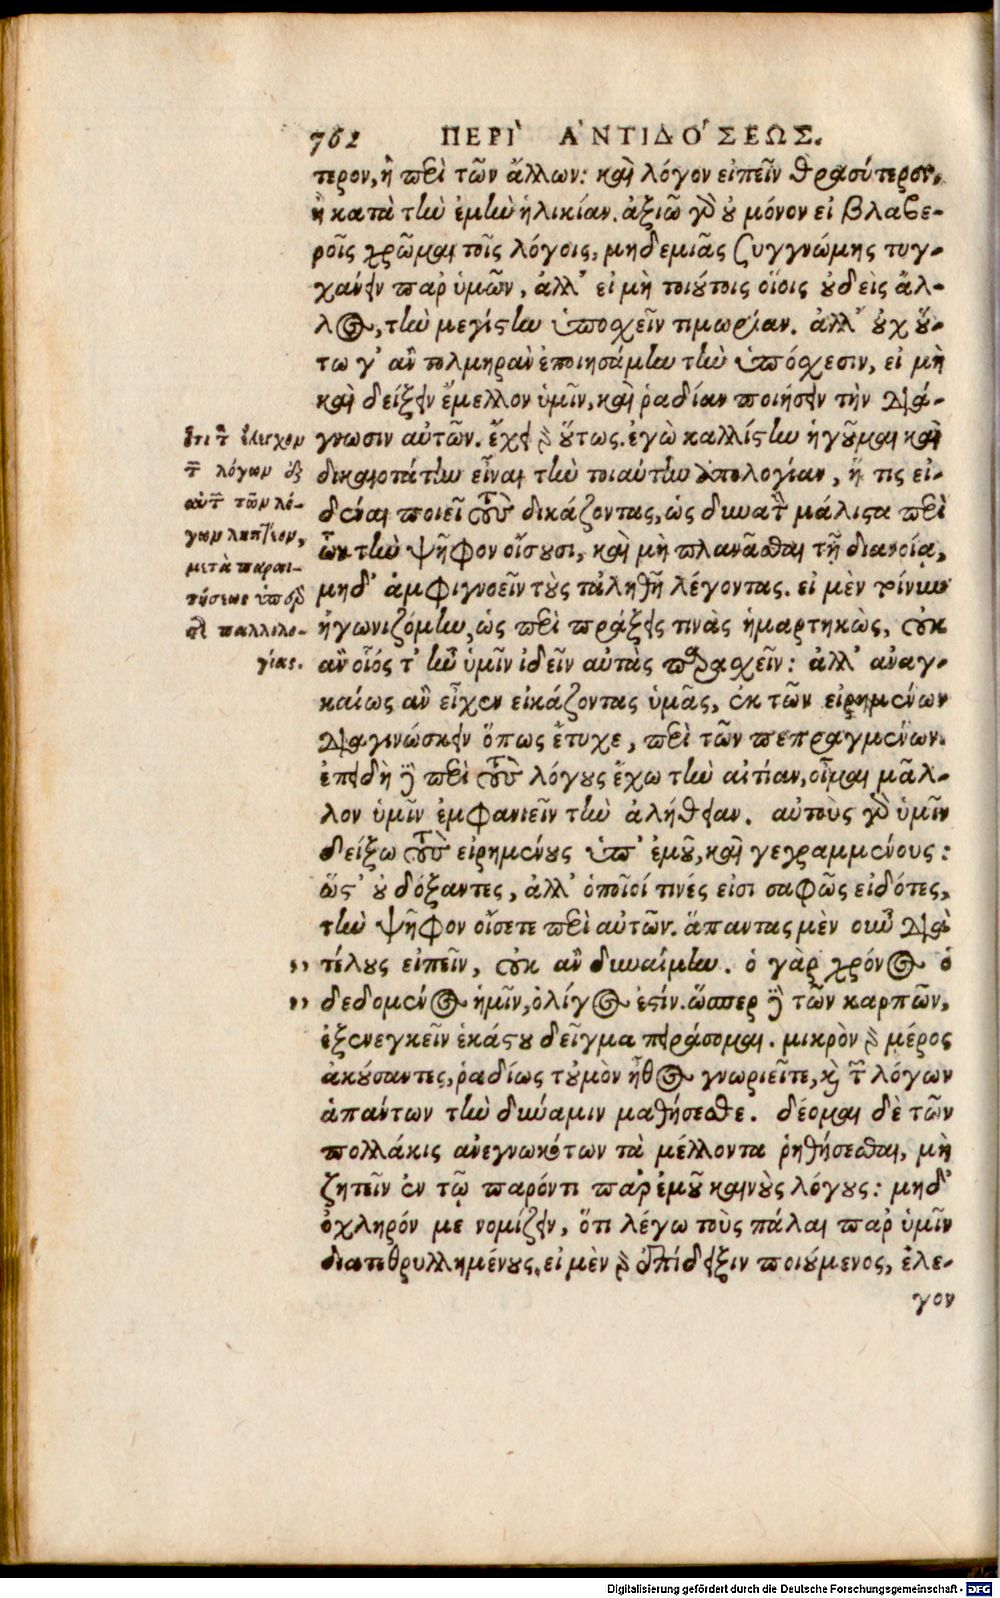 762 ΠΕΡΙ` Α'ΝΤΙΔΟ'ΣΕΩΣ.
τερον, ἢ περὶ τῶν ἄλλων: καὶ λόγον εἰπεῖν θρασύτερον,
ἢ κατὰ τὴν ἐμὴν ἡλικίαν. ἀξιῶ γὰρ οὐ μόνον εἰ βλαβε-
ροῖς χρῶμαι τοῖς λόγοις, μηδεμιᾶς συγγνώμης τυγ-
χάνειν παρ' ὑμῶν, ἀλλ' εἰ μὴ τοιούτοις οἵοις οὐδεὶς ἄλ-
λος, τὴν μεγίστην ὑποσχεῖν τιμωρίαν. ἀλλ' οὐχ οὕ-
τω γ' ἂν τολμηρὰν ἐποιησάμην τὴν ὑπόσχεσιν, εἰ μὴ
καὶ δείξειν ἔμελλον ὑμῖν, καὶ ῥαδίαν ποιήσειν τὴν διά-
γνωσιν αὐτῶν. ἔχει δὲ οὕτως. ἐγὼ καλλίστην ἡγοῦμαι καὶ
δικαιοτάτην εἶναι τὴν τοιαύτην ἀπολογίαν, ἥ τις εἰ-
δέναι ποιεῖ τοὺς δικάζοντας, ὡς δυνατὸν μάλιστα περὶ
ὧν τὴν ψῆφον οἴσουσι, καὶ μὴ πλανᾶσθαι τῇ διανοίᾳ,
μηδ' ἀμφιγνοεῖν τοὺς τἀληθῆ λέγοντας. εἰ μὲν τοίνυν
ἠγωνιζόμην, ὡς περὶ πράξεις τινὰς ἡμαρτηκὼς, οὐκ
ἂν οἷός τ' ἦν ὑμῖν ἰδεῖν αὐτὰς παρασχεῖν: ἀλλ' ἀναγ-
καίως ἂν εἶχεν εἰκάζοντας ὑμᾶς, ἐκ τῶν εἰρημένων
διαγινώσκειν ὅπως ἔτυχε, περὶ τῶν πεπραγμένων.
ἐπειδὴ δὲ περὶ τοὺς λόγους ἔχω τὴν αἰτίαν, οἶμαι μᾶλ-
λον ὑμῖν ἐμφανιεῖν τὴν ἀλήθειαν. αὐτοὺς γὰρ ὑμῖν
δείξω τοὺς εἰρημένους ὑπ' ἐμοῦ, καὶ γεγραμμένους:
ὥστ' οὐ δόξαντες, ἀλλ' ὁποῖοί τινές εἰσι σαφῶς εἰδότες,
τὴν ψῆφον οἴσετε περὶ αὐτῶν. ἅπαντας μὲν οὖν διὰ
,, τέλους εἰπεῖν, οὐκ ἂν δυναίμην. ὁ γὰρ χρόνος ὁ
,, δεδομένος ἡμῖν, ὀλίγος ἐστίν. ὥσπερ δὲ τῶν καρπῶν,
ἐξενεγκεῖν ἑκάστου δεῖγμα πειράσομαι. μικρὸν δὲ μέρος
ἀκούσαντες, ῥαδίως τοὐμὸν ἦθος γνωριεῖτε, καὶ τῶν λόγων
ἁπάντων τὴν δύναμιν μαθήσεσθε. δέομαι δὲ τῶν
πολλάκις ἀνεγνωκότων τὰ μέλλοντα ῥηθήσεσθαι, μὴ
ζητεῖν ἐν τῷ παρόντι παρ' ἐμοῦ καινοὺς λόγους: μηδ'
ὀχληρόν με νομίζειν, ὅτι λέγω τοὺς πάλαι παρ' ὑμῖν
διατεθρυλλημένους. εἰ μὲν γὰρ ἐπίδειξιν ποιούμενος, ἔλε-
γον
ὅτι τὸν ἔλεγχον
τῶν λόγων ἐξ
αὐτῶν τῶν λό-
γων ληπτέον,
μετὰ παραι-
τήσεως ὑπὲρ
τῆς παλλιλο-
γίας.
Digitalisierung gefördert durch die Deutsche Forschungsgemeinschaft - DFG